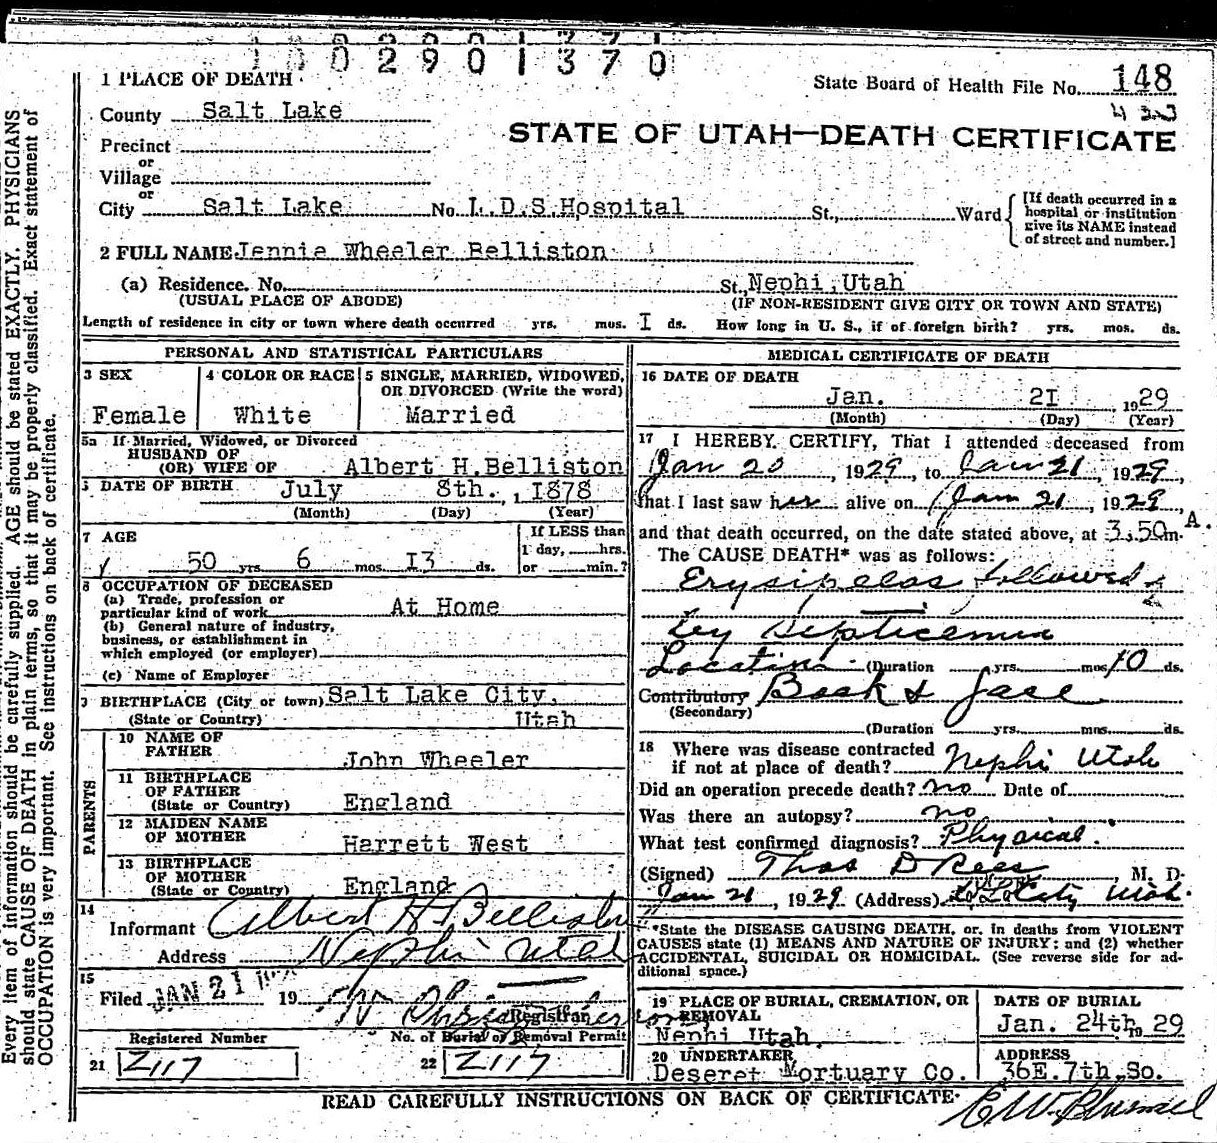 1 0 0 2 9 0 1 3 7 0
1 PLACE OF DEATH
State Board of Health File No. 148
County Salt Lake
423
STATE OF UTAH—DEATH CERTIFICATE
Precinct
or
Village
or
City Salt Lake No. L.D.S.Hospital St., Ward
[If death occurred in a
hospital or institution
give its NAME instead
of street and number.]
2 FULL NAME Jennie Wheeler Belliston
(a) Residence. No. St., Nephi,Utah
(USUAL PLACE OF ABODE) (IF NON-RESIDENT GIVE CITY OR TOWN AND STATE)
Length of residence in city or town where death occurred yrs. mos. I ds. How long in U. S., if of foreign birth? yrs. mos. ds.
PERSONAL AND STATISTICAL PARTICULARS
3 SEX
Female
4 COLOR OR RACE
White
5 SINGLE, MARRIED, WIDOWED,
OR DIVORCED (Write the word)
Married
5a If Married, Widowed, or Divorced
HUSBAND OF
(OR) WIFE OF Albert H.Belliston
DATE OF BIRTH July 8th. , I878
(Month) (Day) (Year)
7 AGE
50 yrs 6 mos. I3 ds.
If LESS than
1 day, hrs.
or min.?
8 OCCUPATION OF DECEASED
(a) Trade, profession or
particular kind of work At Home
(b) General nature of industry,
business, or establishment in
which employed (or employer)
(c) Name of Employer
9 BIRTHPLACE (City or town) Salt Lake City,
(State or Country) Utah
PARENTS
10 NAME OF
FATHER John Wheeler
11 BIRTHPLACE
OF FATHER
(State or Country) England
12 MAIDEN NAME
OF MOTHER Harrett West
13 BIRTHPLACE
OF MOTHER
(State or Country) England
14
Informant Albert H Belliston
Address Nephi Utah
15
Filed JAN 21 19
Registrar
Registered Number
21 2117
No. of Burial or Removal Permit
22 2117
MEDICAL CERTIFICATE OF DEATH
16 DATE OF DEATH
Jan. 2I , 1929
(Month) (Day) (Year)
17 I HEREBY CERTIFY, That I attended deceased from
Jan 20 , 1929, to Jan 21 , 1929,
that I last saw her alive on Jan 21 , 1929,
and that death occurred, on the date stated above, at 3.50 A.m.
The CAUSE DEATH* was as follows:
Erysipelas followed
by Septicemia
Location (Duration yrs. mos 10 ds.
Contributory Back & face
(Secondary)
(Duration yrs. mos. ds.
18 Where was disease contracted
if not at place of death? Nephi Utah
Did an operation precede death? no Date of
Was there an autopsy? no
What test confirmed diagnosis? Physical.
(Signed) Thos D Rees , M. D.
Jan 21 , 1929 (Address) S. L. City Utah.
*State the DISEASE CAUSING DEATH, or, in deaths from VIOLENT
CAUSES state (1) MEANS AND NATURE OF INJURY; and (2) whether
ACCIDENTAL, SUICIDAL OR HOMICIDAL. (See reverse side for ad-
ditional space.)
19 PLACE OF BURIAL, CREMATION, OR
REMOVAL
Nephi Utah.
DATE OF BURIAL
Jan. 24th, 29
20 UNDERTAKER
Deseret Mortuary Co.
ADDRESS
36E.7th.So.
READ CAREFULLY INSTRUCTIONS ON BACK OF CERTIFICATE.
Every item of information should be carefully supplied. AGE should be stated EXACTLY. PHYSICIANS
should state CAUSE OF DEATH in plain terms, so that it may be properly classified. Exact statement of
OCCUPATION is very important. See instructions on back of certificate.